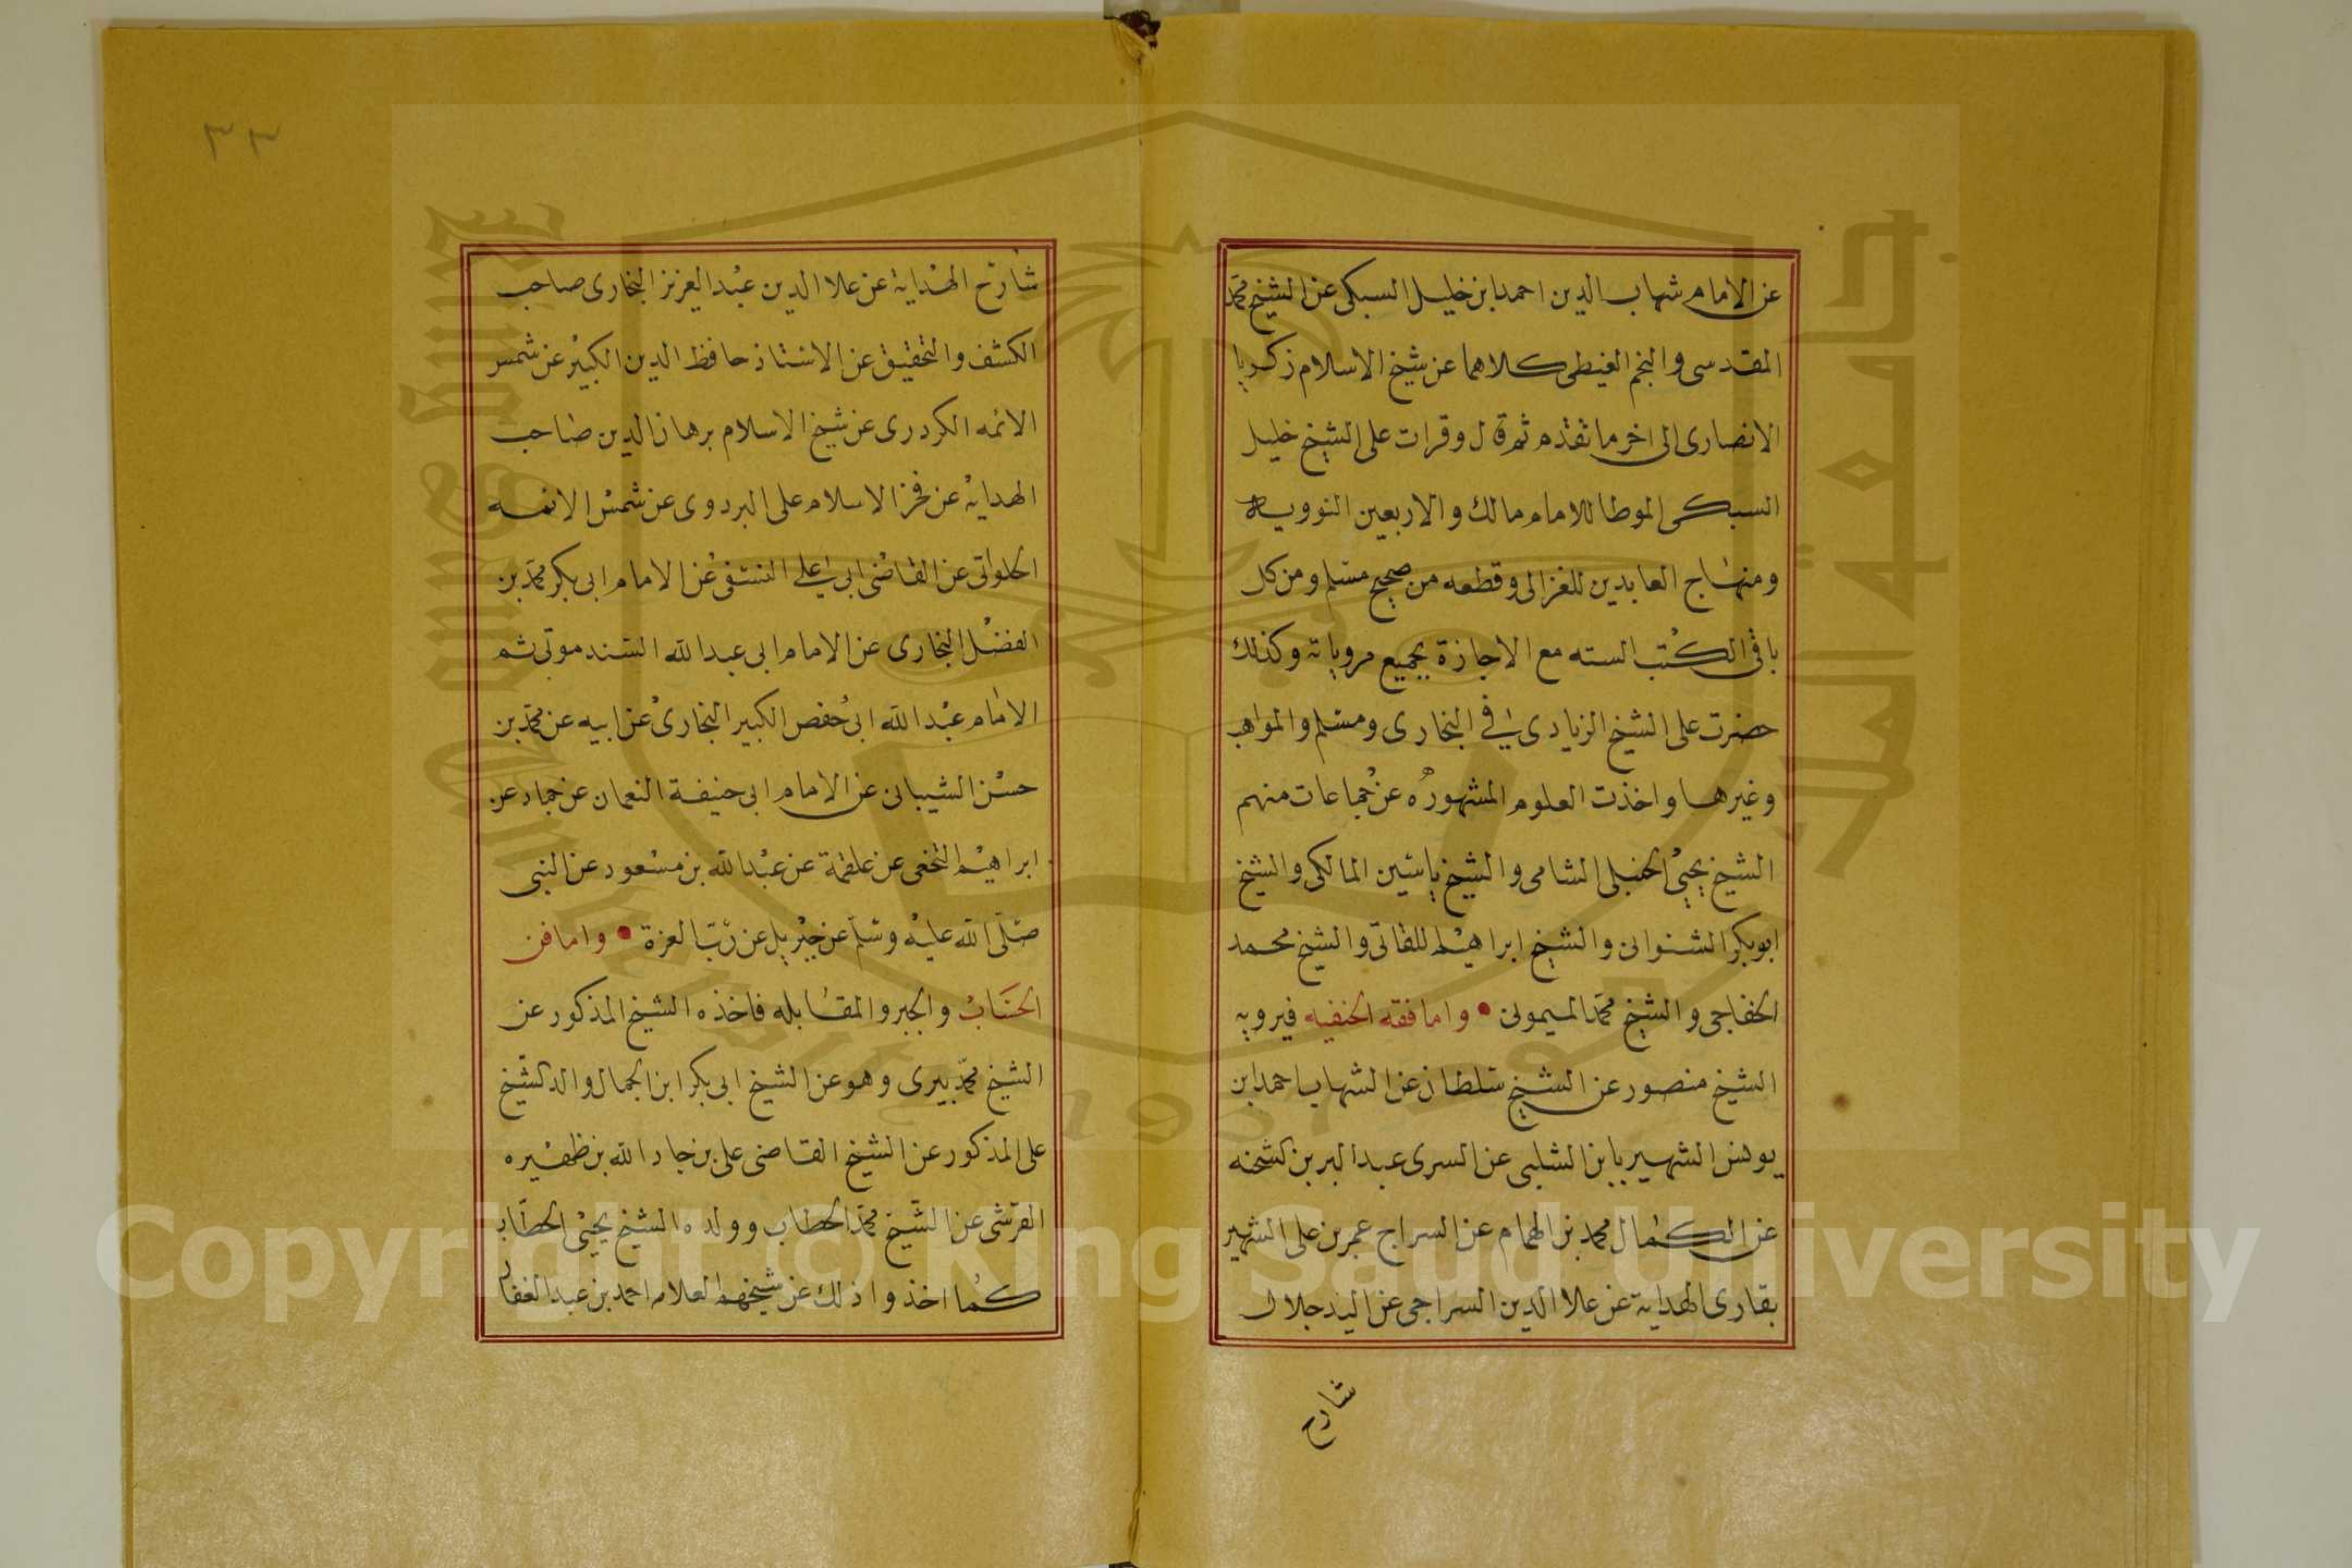 عن الامام شهاب الدين احمد ابن خليل السبكى عن الشيخ محمد
المقدسى والنجم الغيطى كلاهما عن شيخ الاسلام زكريا
الانصارى الى اخر ما تقدم ثم قال وقرات على الشيخ خليل
السبكى الموطا للامام مالك والاربعين النوويه
ومنهاج العابدين للغزالى وقطعه من صحيح مسلم ومن كل
باقى الكتب السته مع الاجازة بجميع مروياته وكذلك
حضرت على الشيخ الزيادى في البخارى ومسلم والمواهب
وغيرها واخذت العلوم المشهوره عن جماعات منهم
الشيخ يحيى الحنبلى الشامى والشيخ ياسين المالكى والشيخ
ابوبكر الشنوانى والشيخ ابراهيم اللقانى والشيخ محمد
الخفاجى والشيخ محمد الميمونى • واما فقه الحنفيه فيرويه
الشيخ منصور عن الشيخ سلطان عن الشهاب احمد ابن
يوهنس الشهير بابن الشلبى عن السرى عبد البر بن كشحنه
عن الكمال محمد بن الهمام عن السراج عمر بن على الشهير
بقارى الهداية عن علا الدين السراجى عن السيد جلال
شارح
شارح الهداية عن علا الدين عبد العزيز البخارى صاحب
الكشف والتحقيق عن الاستاذ حافظ الدين الكبير عن شمس
الائمه الكردرى عن شيخ الاسلام برهان الدين صاحب
الهداية عن فخر الاسلام على البردوى عن شمس الائمه
الحلوانى عن القاضى ابى على النسفى عن الامام ابى بكر محمد بن
الفضل البخارى عن الامام ابى عبد الله السندموتى ثم
الامام عبد الله ابى حفص الكبير البخارى عن ابيه عن محمد بن
حسن الشيبانى عن الامام ابى حنيفة النعمان عن حماد عن
ابراهيم النخعى عن علقمة عن عبد الله بن مسعود عن النبى
صلى الله عليه وسلم عن جبريل عن رب العزة • واما فن
الحساب والجبر والمقابله فاخذه الشيخ المذكور عن
الشيخ محمد بيرى وهو عن الشيخ ابى بكر ابن الجمال والد كشيخ
على المذكور عن الشيخ القاضى على بن جار الله بن ظهيره
القرشى عن الشيخ محمد الحطاب وولده الشيخ يحيى الحطاب
كما اخذوا ذلك عن شيخهم العلامه احمد بن عبد الغفار
٣٣
Copyright © King Saud University